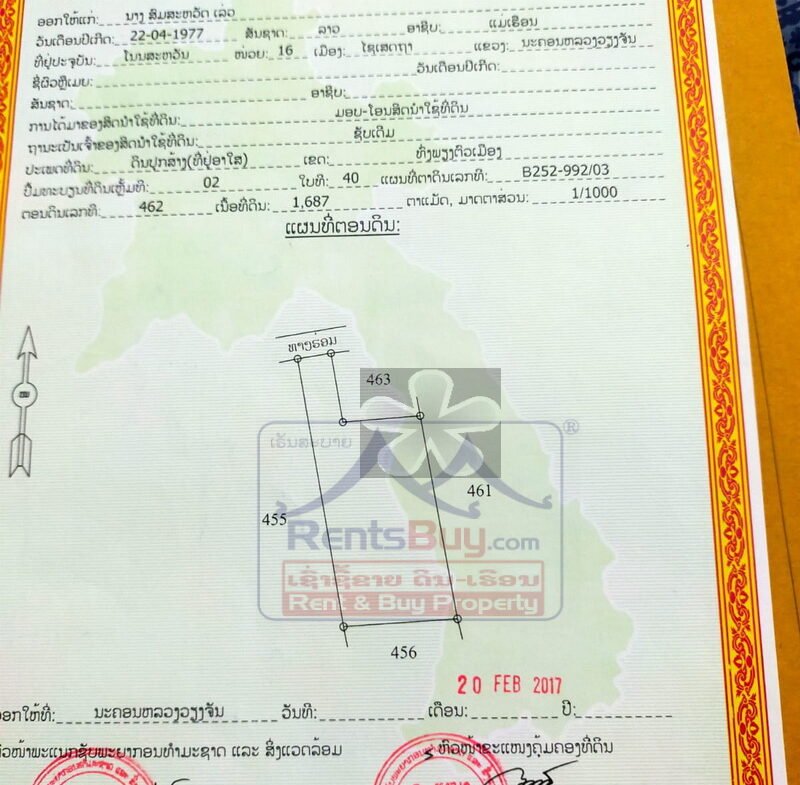 ອອກໃຫ້ແກ່: ນາງ ສົມສະຫວັດ ເລ່ວ
ວັນເດືອນປີເກີດ: 22-04-1977 ສັນຊາດ: ລາວ ອາຊີບ: ແມ່ເຮືອນ
ທີ່ຢູ່ປະຈຸບັນ: ໂນນສະຫວັນ ໜ່ວຍ: 16 ເມືອງ: ໄຊເສດຖາ ແຂວງ: ນະຄອນຫລວງວຽງຈັນ
ຊື່ຜົວຫຼືເມຍ: ວັນເດືອນປີເກີດ:
ສັນຊາດ: ອາຊີບ:
ການໄດ້ມາຂອງສິດນຳໃຊ້ທີ່ດິນ: ມອບ-ໂອນສິດນຳໃຊ້ທີ່ດິນ
ຖານະເປັນເຈົ້າຂອງສິດນຳໃຊ້ທີ່ດິນ: ຊັບເດີມ
ປະເພດທີ່ດິນ: ດິນປຸກສ້າງ(ທີ່ຢູ່ອາໃສ) ເຂດ: ທົ່ງພຽງຕົວເມືອງ
ປຶ້ມທະບຽນທີ່ດິນເຫຼັ້ມທີ: 02 ໃບທີ: 40 ແຜນທີ່ຕາດິນເລກທີ: B252-992/03
ຕອນດິນເລກທີ: 462 ເນື້ອທີ່ດິນ: 1,687 ຕາແມັດ, ມາດຕາສ່ວນ: 1/1000
ແຜນທີ່ຕອນດິນ:
ທາງຮ່ອມ
463
ເຮັນສະບາຍ ®
461
455
RentsBuy.com
ເຊົ່າຊື້ຂາຍ ດິນ-ເຮືອນ
Rent & Buy Property
456
20 FEB 2017
ອອກໃຫ້ທີ່: ນະຄອນຫລວງວຽງຈັນ ວັນທີ: ເດືອນ: ປີ:
ຫົວໜ້າພະແນກຊັບພະຍາກອນທຳມະຊາດ ແລະ ສິ່ງແວດລ້ອມ ຫົວໜ້າຂະແໜງຄຸ້ມຄອງທີ່ດິນ